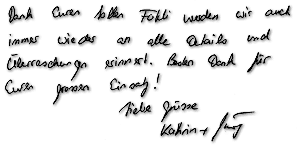 Dank Euren tollen Fotos werden wir auch
immer wieder an alle Details und
Überraschungen erinnert. Besten Dank für
Euren grossen Einsatz!
Liebe Grüsse
Kathrin +